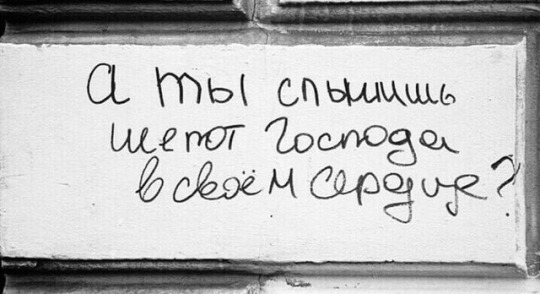 а ты слышишь
шепот Господа
в своём сердце?